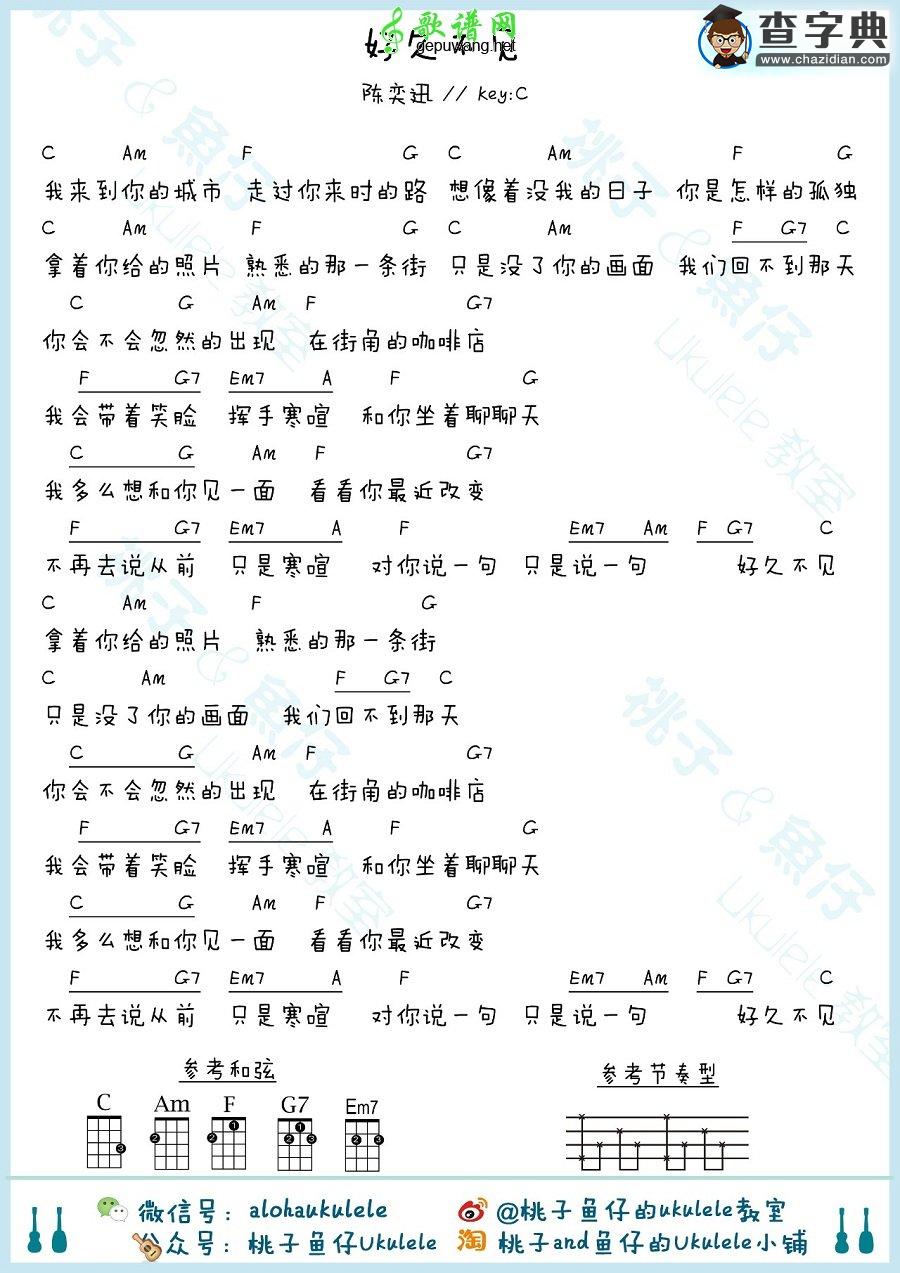 歌谱网
gepuwang.net
查字典
www.chazidian.com
好久不见
陈奕迅 // key:C
C Am F G C Am F G
我来到你的城市 走过你来时的路 想像着没我的日子 你是怎样的孤独
C Am F G C Am F G7 C
拿着你给的照片 熟悉的那一条街 只是没了你的画面 我们回不到那天
C G Am F G7
你会不会忽然的出现 在街角的咖啡店
F G7 Em7 A F G
我会带着笑脸 挥手寒喧 和你坐着聊聊天
C G Am F G7
我多么想和你见一面 看看你最近改变
F G7 Em7 A F Em7 Am F G7 C
不再去说从前 只是寒喧 对你说一句 只是说一句 好久不见
C Am F G
拿着你给的照片 熟悉的那一条街
C Am F G7 C
只是没了你的画面 我们回不到那天
C G Am F G7
你会不会忽然的出现 在街角的咖啡店
F G7 Em7 A F G
我会带着笑脸 挥手寒喧 和你坐着聊聊天
C G Am F G7
我多么想和你见一面 看看你最近改变
F G7 Em7 A F Em7 Am F G7 C
不再去说从前 只是寒喧 对你说一句 只是说一句 好久不见
参考和弦 参考节奏型
C Am F G7 Em7
3 2 2 1 2 1 3 2 3
微信号：alohaukulele @桃子鱼仔的ukulele教室
公众号：桃子鱼仔Ukulele 淘 桃子and鱼仔的Ukulele小铺
桃子 & 魚仔
Ukulele 教室
桃子 & 魚仔
Ukulele 教室
桃子 & 魚仔
Ukulele 教室
桃子 & 魚仔
Ukulele 教室